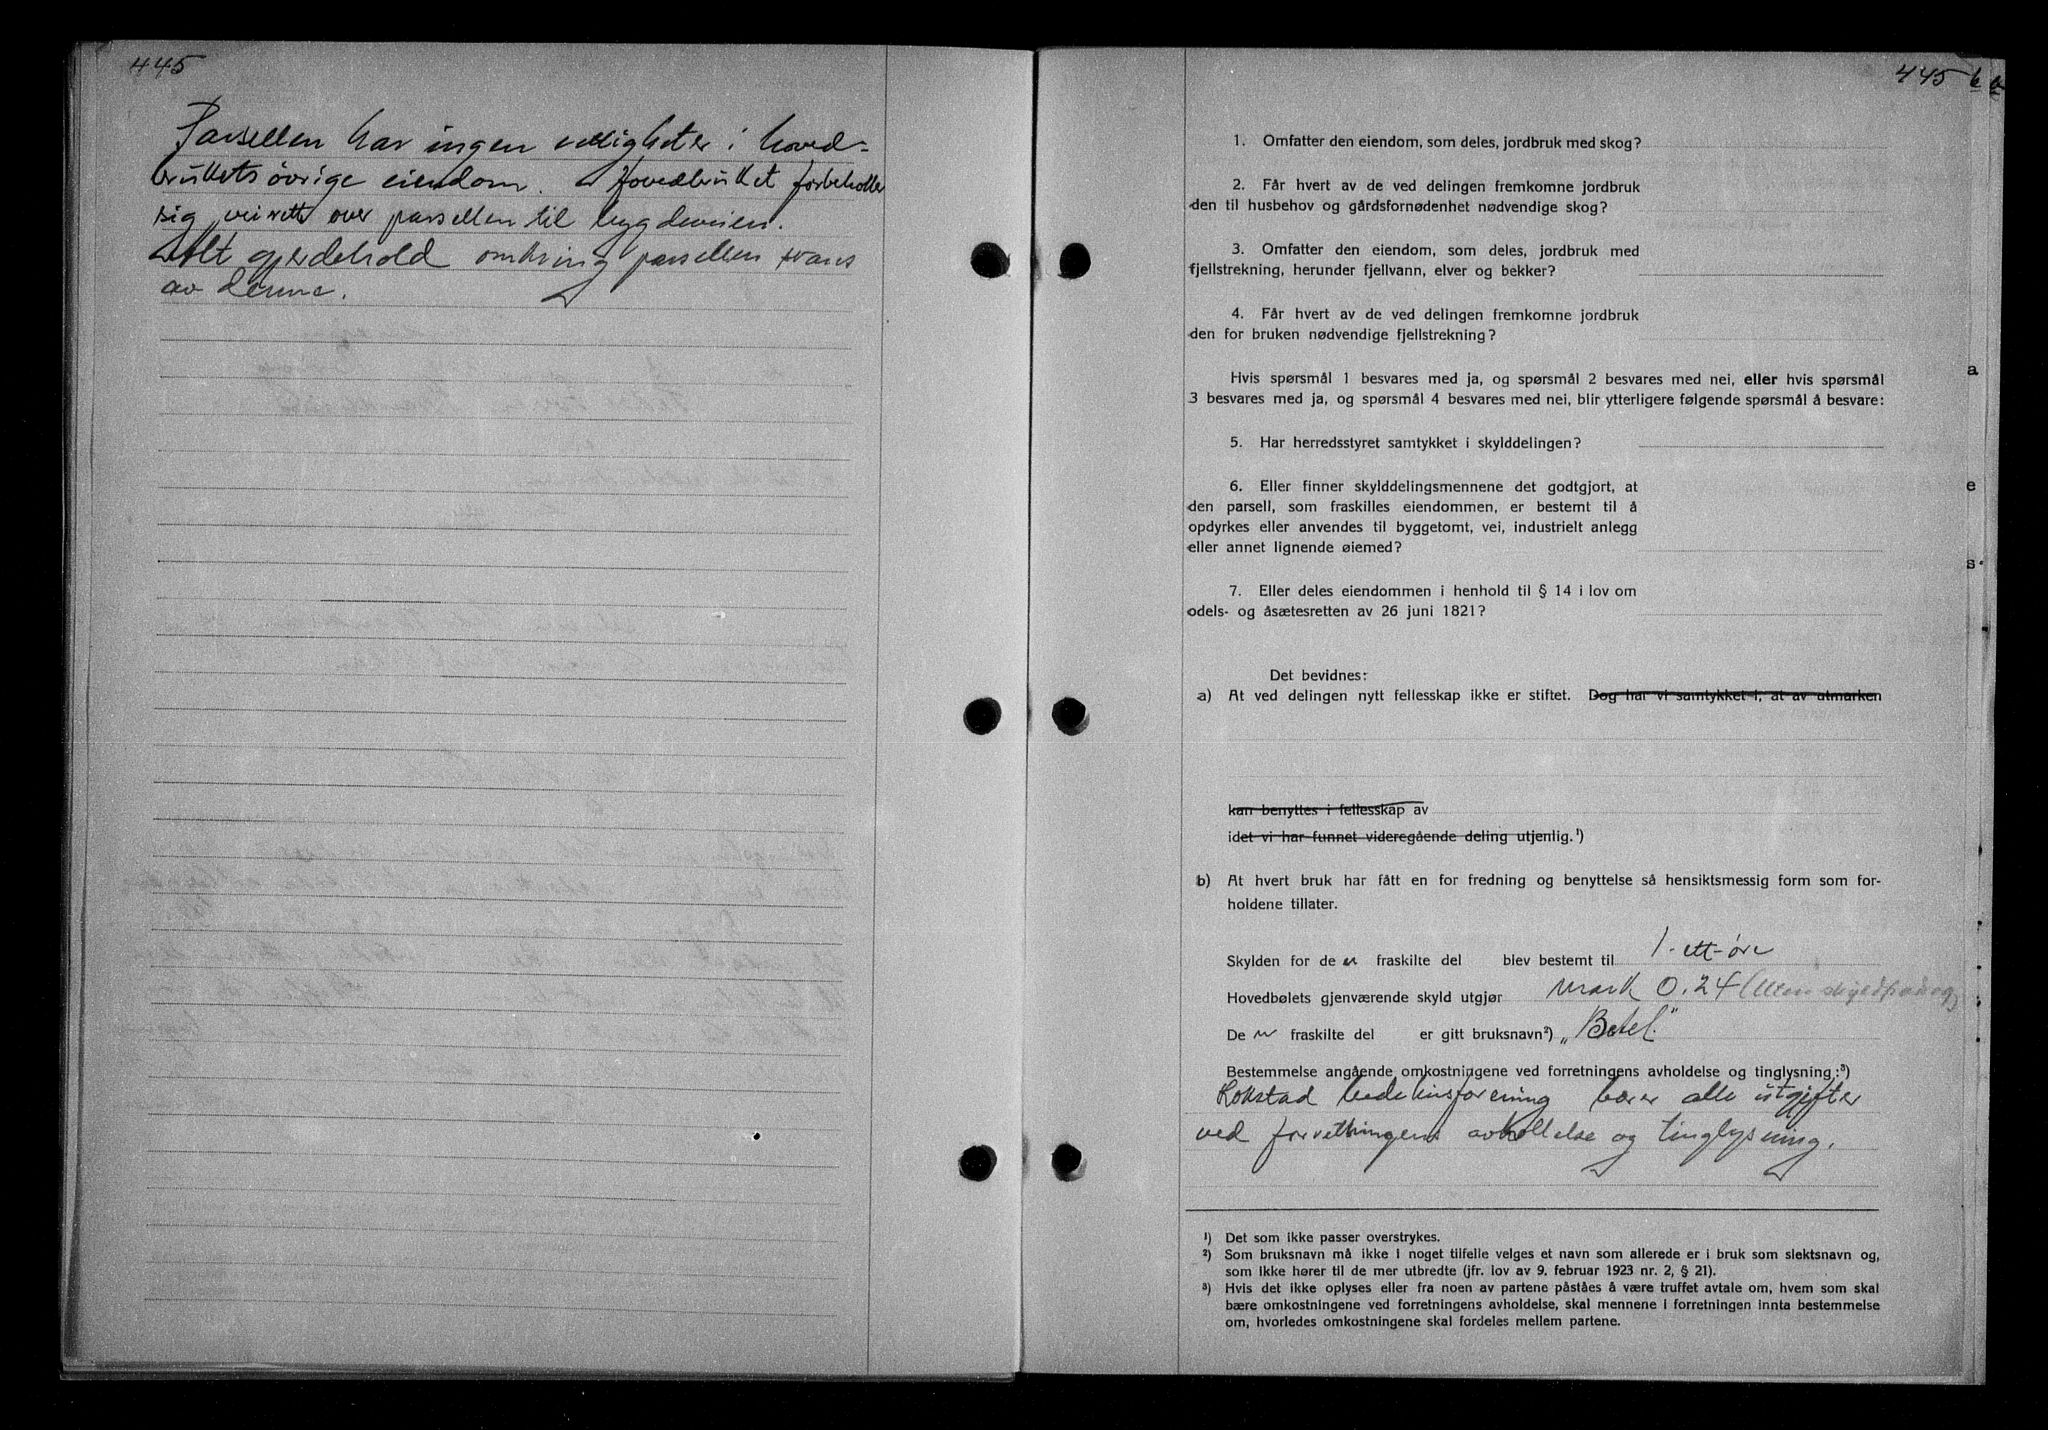 445
Parsellen har ingen rettigheter i hoved-
brukets øvrige eiendom. Hovedbruket forbeholder
sig veirett over parsellen til bygdeveien.
Alt gjerdehold omkring parsellen svares
av denne.
445 b
1. Omfatter den eiendom, som deles, jordbruk med skog?
2. Får hvert av de ved delingen fremkomne jordbruk
den til husbehov og gårdsfornødenhet nødvendige skog?
3. Omfatter den eiendom, som deles, jordbruk med
fjellstrekning, herunder fjellvann, elver og bekker?
4. Får hvert av de ved delingen fremkomne jordbruk
den for bruken nødvendige fjellstrekning?
Hvis spørsmål 1 besvares med ja, og spørsmål 2 besvares med nei, eller hvis spørsmål
3 besvares med ja, og spørsmål 4 besvares med nei, blir ytterligere følgende spørsmål å besvare:
5. Har herredsstyret samtykket i skylddelingen?
6. Eller finner skylddelingsmennene det godtgjort, at
den parsell, som fraskilles eiendommen, er bestemt til å
opdyrkes eller anvendes til byggetomt, vei, industrielt anlegg
eller annet lignende øiemed?
7. Eller deles eiendommen i henhold til § 14 i lov om
odels- og åsætesretten av 26 juni 1821?
Det bevidnes:
a) At ved delingen nytt fellesskap ikke er stiftet. Dog har vi samtykket i, at av utmarken
kan benyttes i fellesskap av
idet vi har funnet videregående deling utjenlig.¹)
b) At hvert bruk har fått en for fredning og benyttelse så hensiktsmessig form som for-
holdene tillater.
Skylden for de n fraskilte del blev bestemt til 1-ett-øre
Hovedbølets gjenværende skyld utgjør mark 0.24 (Uten skyldfradrag)
De n fraskilte del er gitt bruksnavn²) „Betel."
Bestemmelse angående omkostningene ved forretningens avholdelse og tinglysning:³)
Lokstad bedehusforening bærer alle utgifter
ved forretningens avholdelse og tinglysning.
¹) Det som ikke passer overstrykes.
²) Som bruksnavn må ikke i noget tilfelle velges et navn som allerede er i bruk som slektsnavn og,
som ikke hører til de mer utbredte (jfr. lov av 9. februar 1923 nr. 2, § 21).
³) Hvis det ikke oplyses eller fra noen av partene påståes å være truffet avtale om, hvem som skal
bære omkostningene ved forretningens avholdelse, skal mennene i forretningen innta bestemmelse
om, hvorledes omkostningene skal fordeles mellem partene.